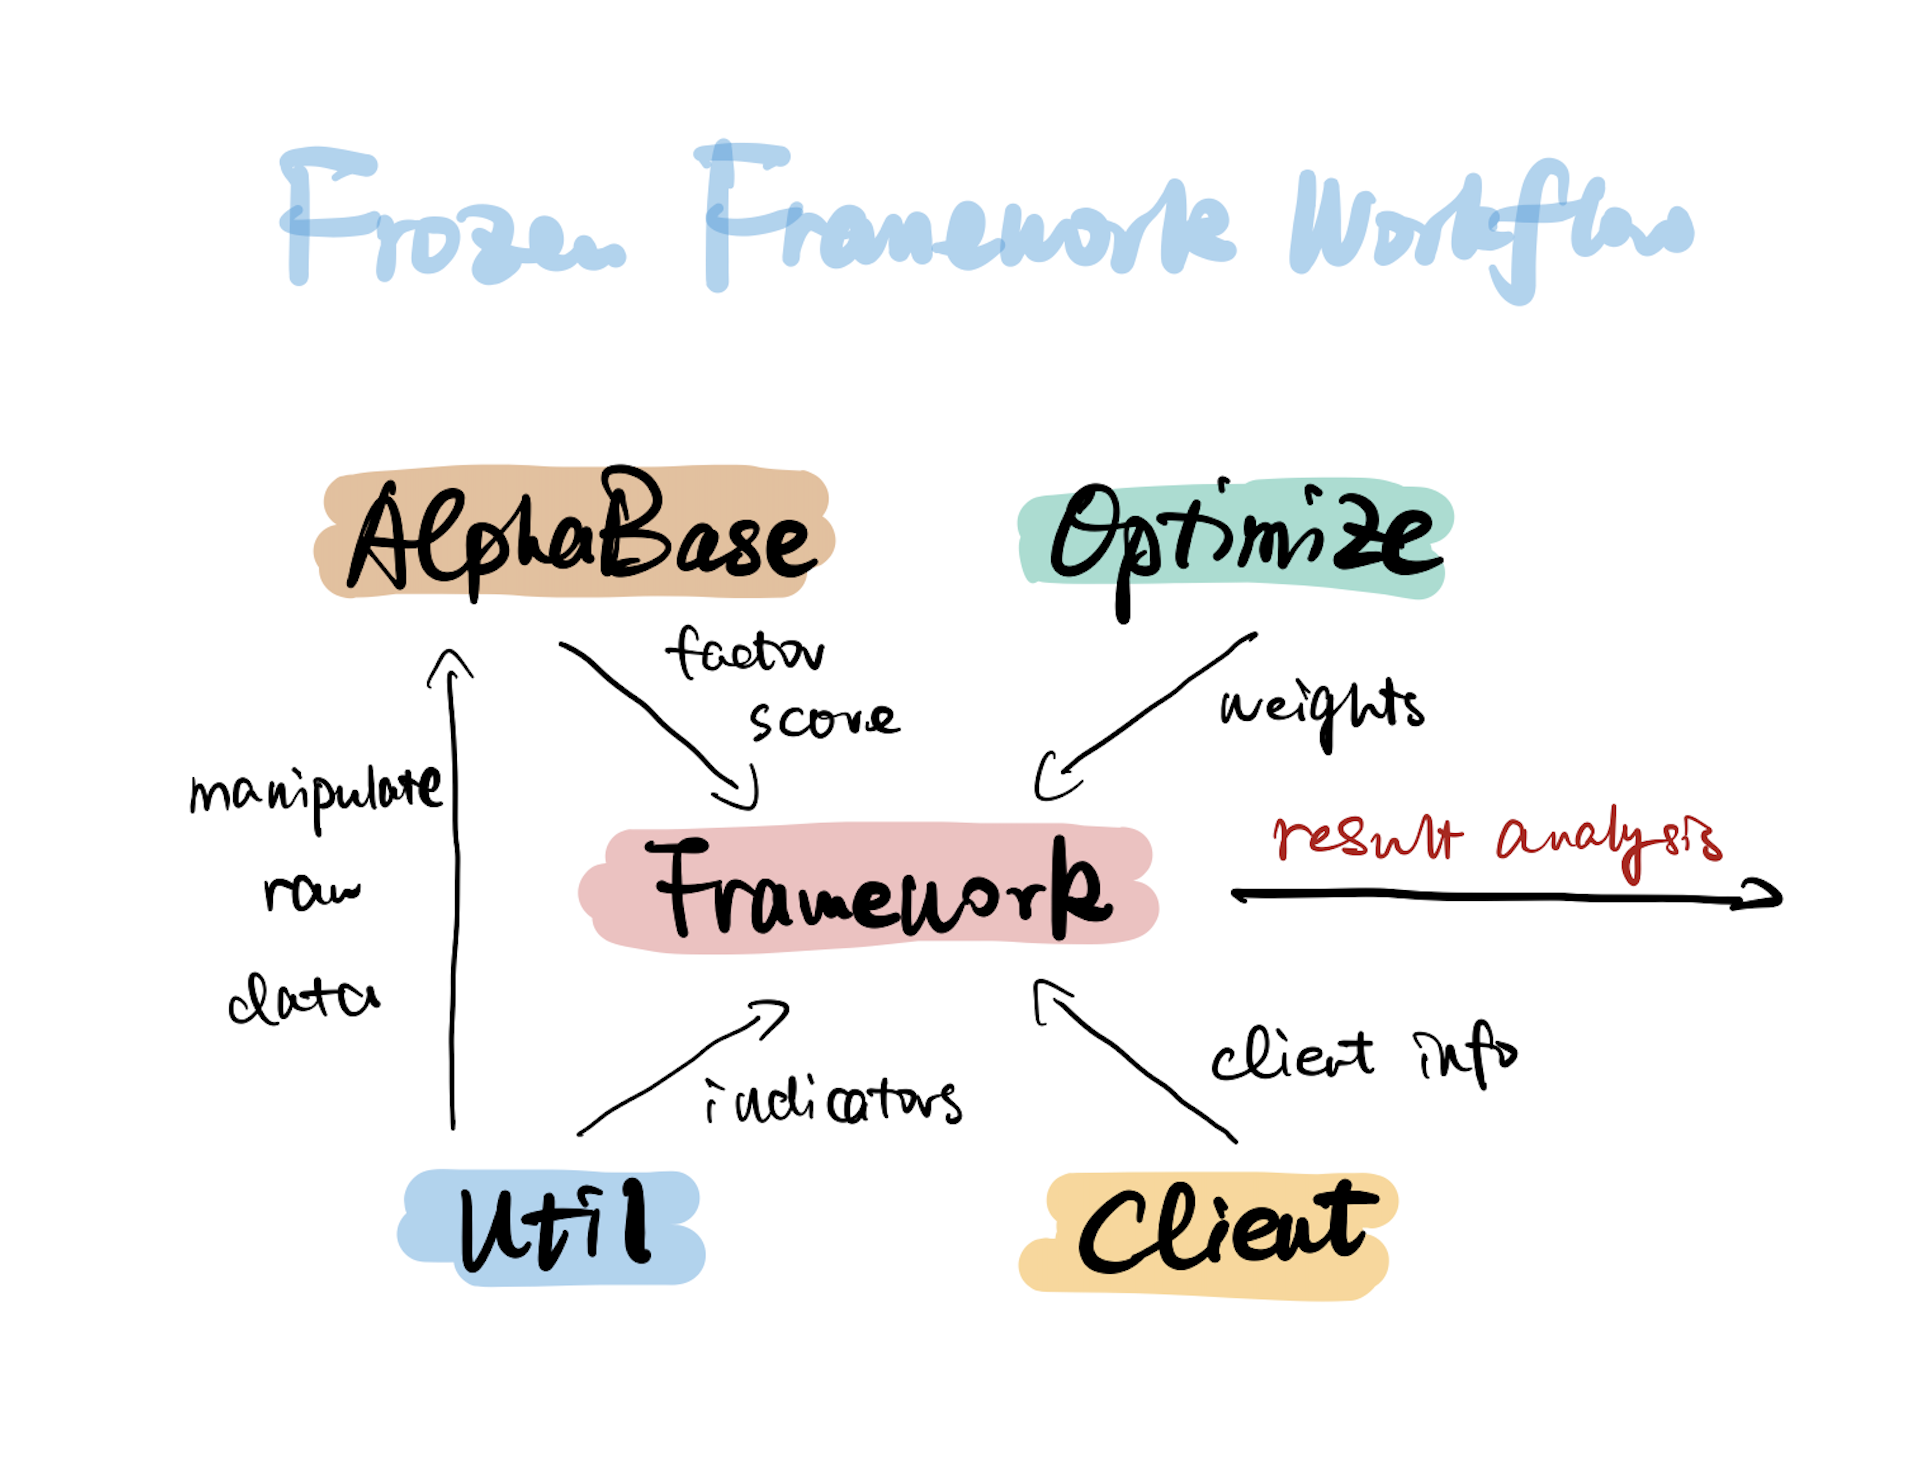 Frozen Framework Workflow
AlphaBase
Optimize
factor
score
weights
manipulate
raw
data
Framework
result analysis
indicators
client info
Util
Client